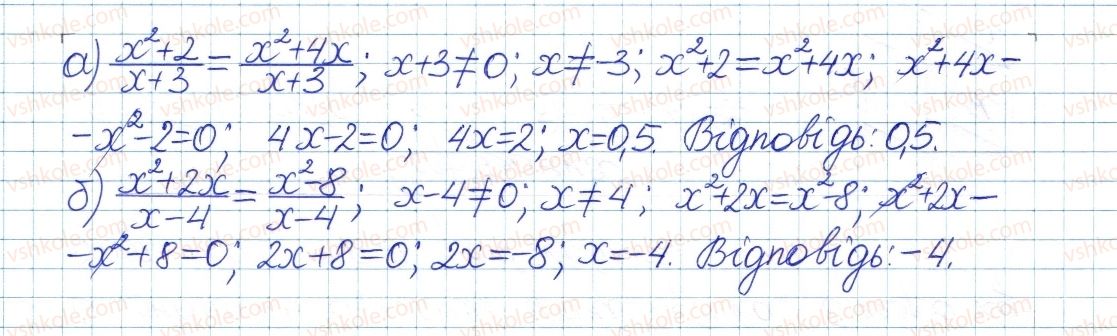 а) (x²+2)/(x+3) = (x²+4x)/(x+3); x+3≠0; x≠-3; x²+2=x²+4x; x²+4x-
-x²-2=0; 4x-2=0; 4x=2; x=0,5. Відповідь: 0,5.
б) (x²+2x)/(x-4) = (x²-8)/(x-4); x-4≠0; x≠4; x²+2x=x²-8; x²+2x-
-x²+8=0; 2x+8=0; 2x=-8; x=-4. Відповідь: -4.